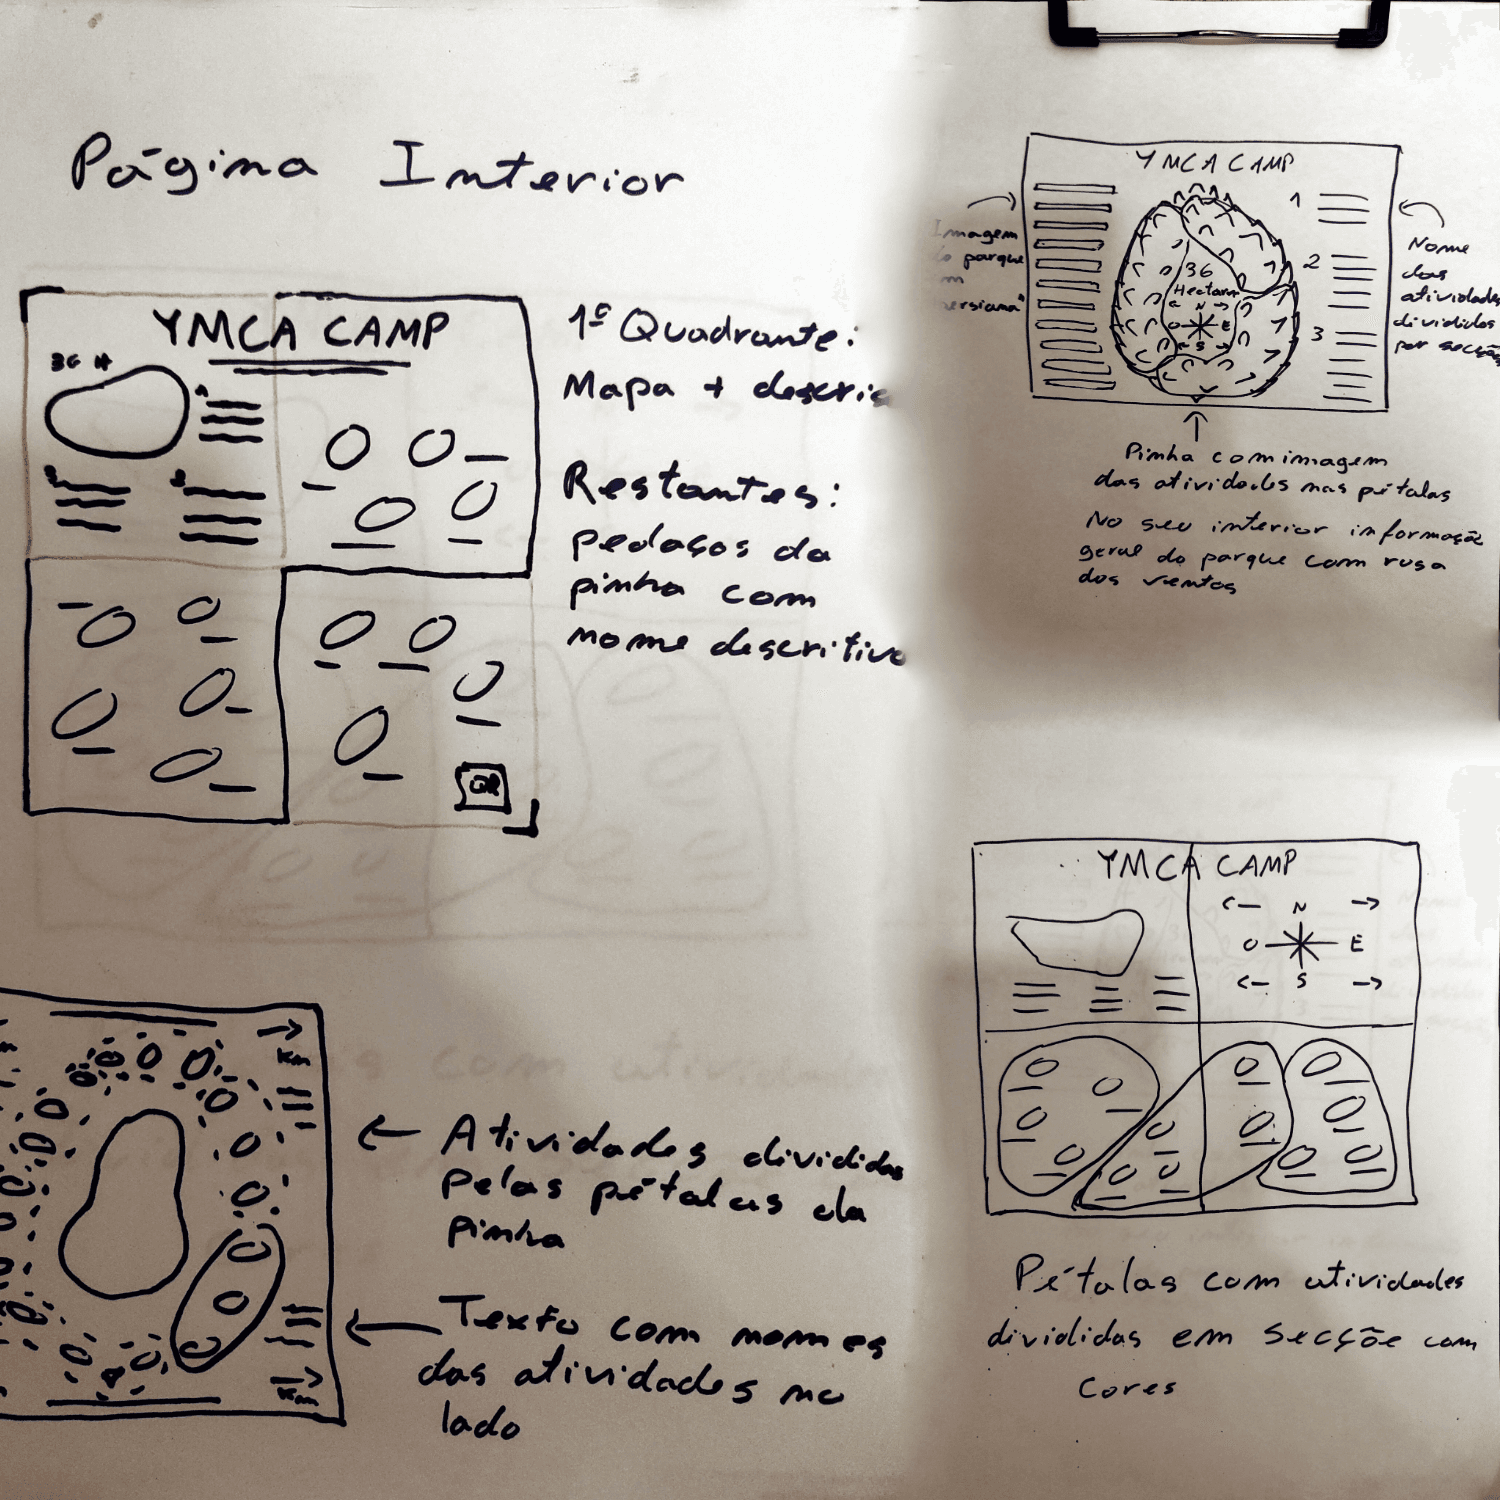 Página Interior
YMCA CAMP
36 H
1º Quadrante:
Mapa + descriç
Restantes:
pedaços da
pinha com
nome descritivo
QR
Km
← Atividades divididas
pelas pétalas da
pinha
← Texto com nomes
das atividades no
lado
Km
YMCA CAMP
Imagem
do parque
em
"persiana"
1
2
3
36
Hectares
← N →
O E
← S →
Nome
das
atividades
divididas
por secção
Pinha com imagem
das atividades nas pétalas
No seu interior informação
geral do parque com rosa
dos ventos
YMCA CAMP
← N →
O E
← S →
Pétalas com atividades
divididas em secçõe com
cores